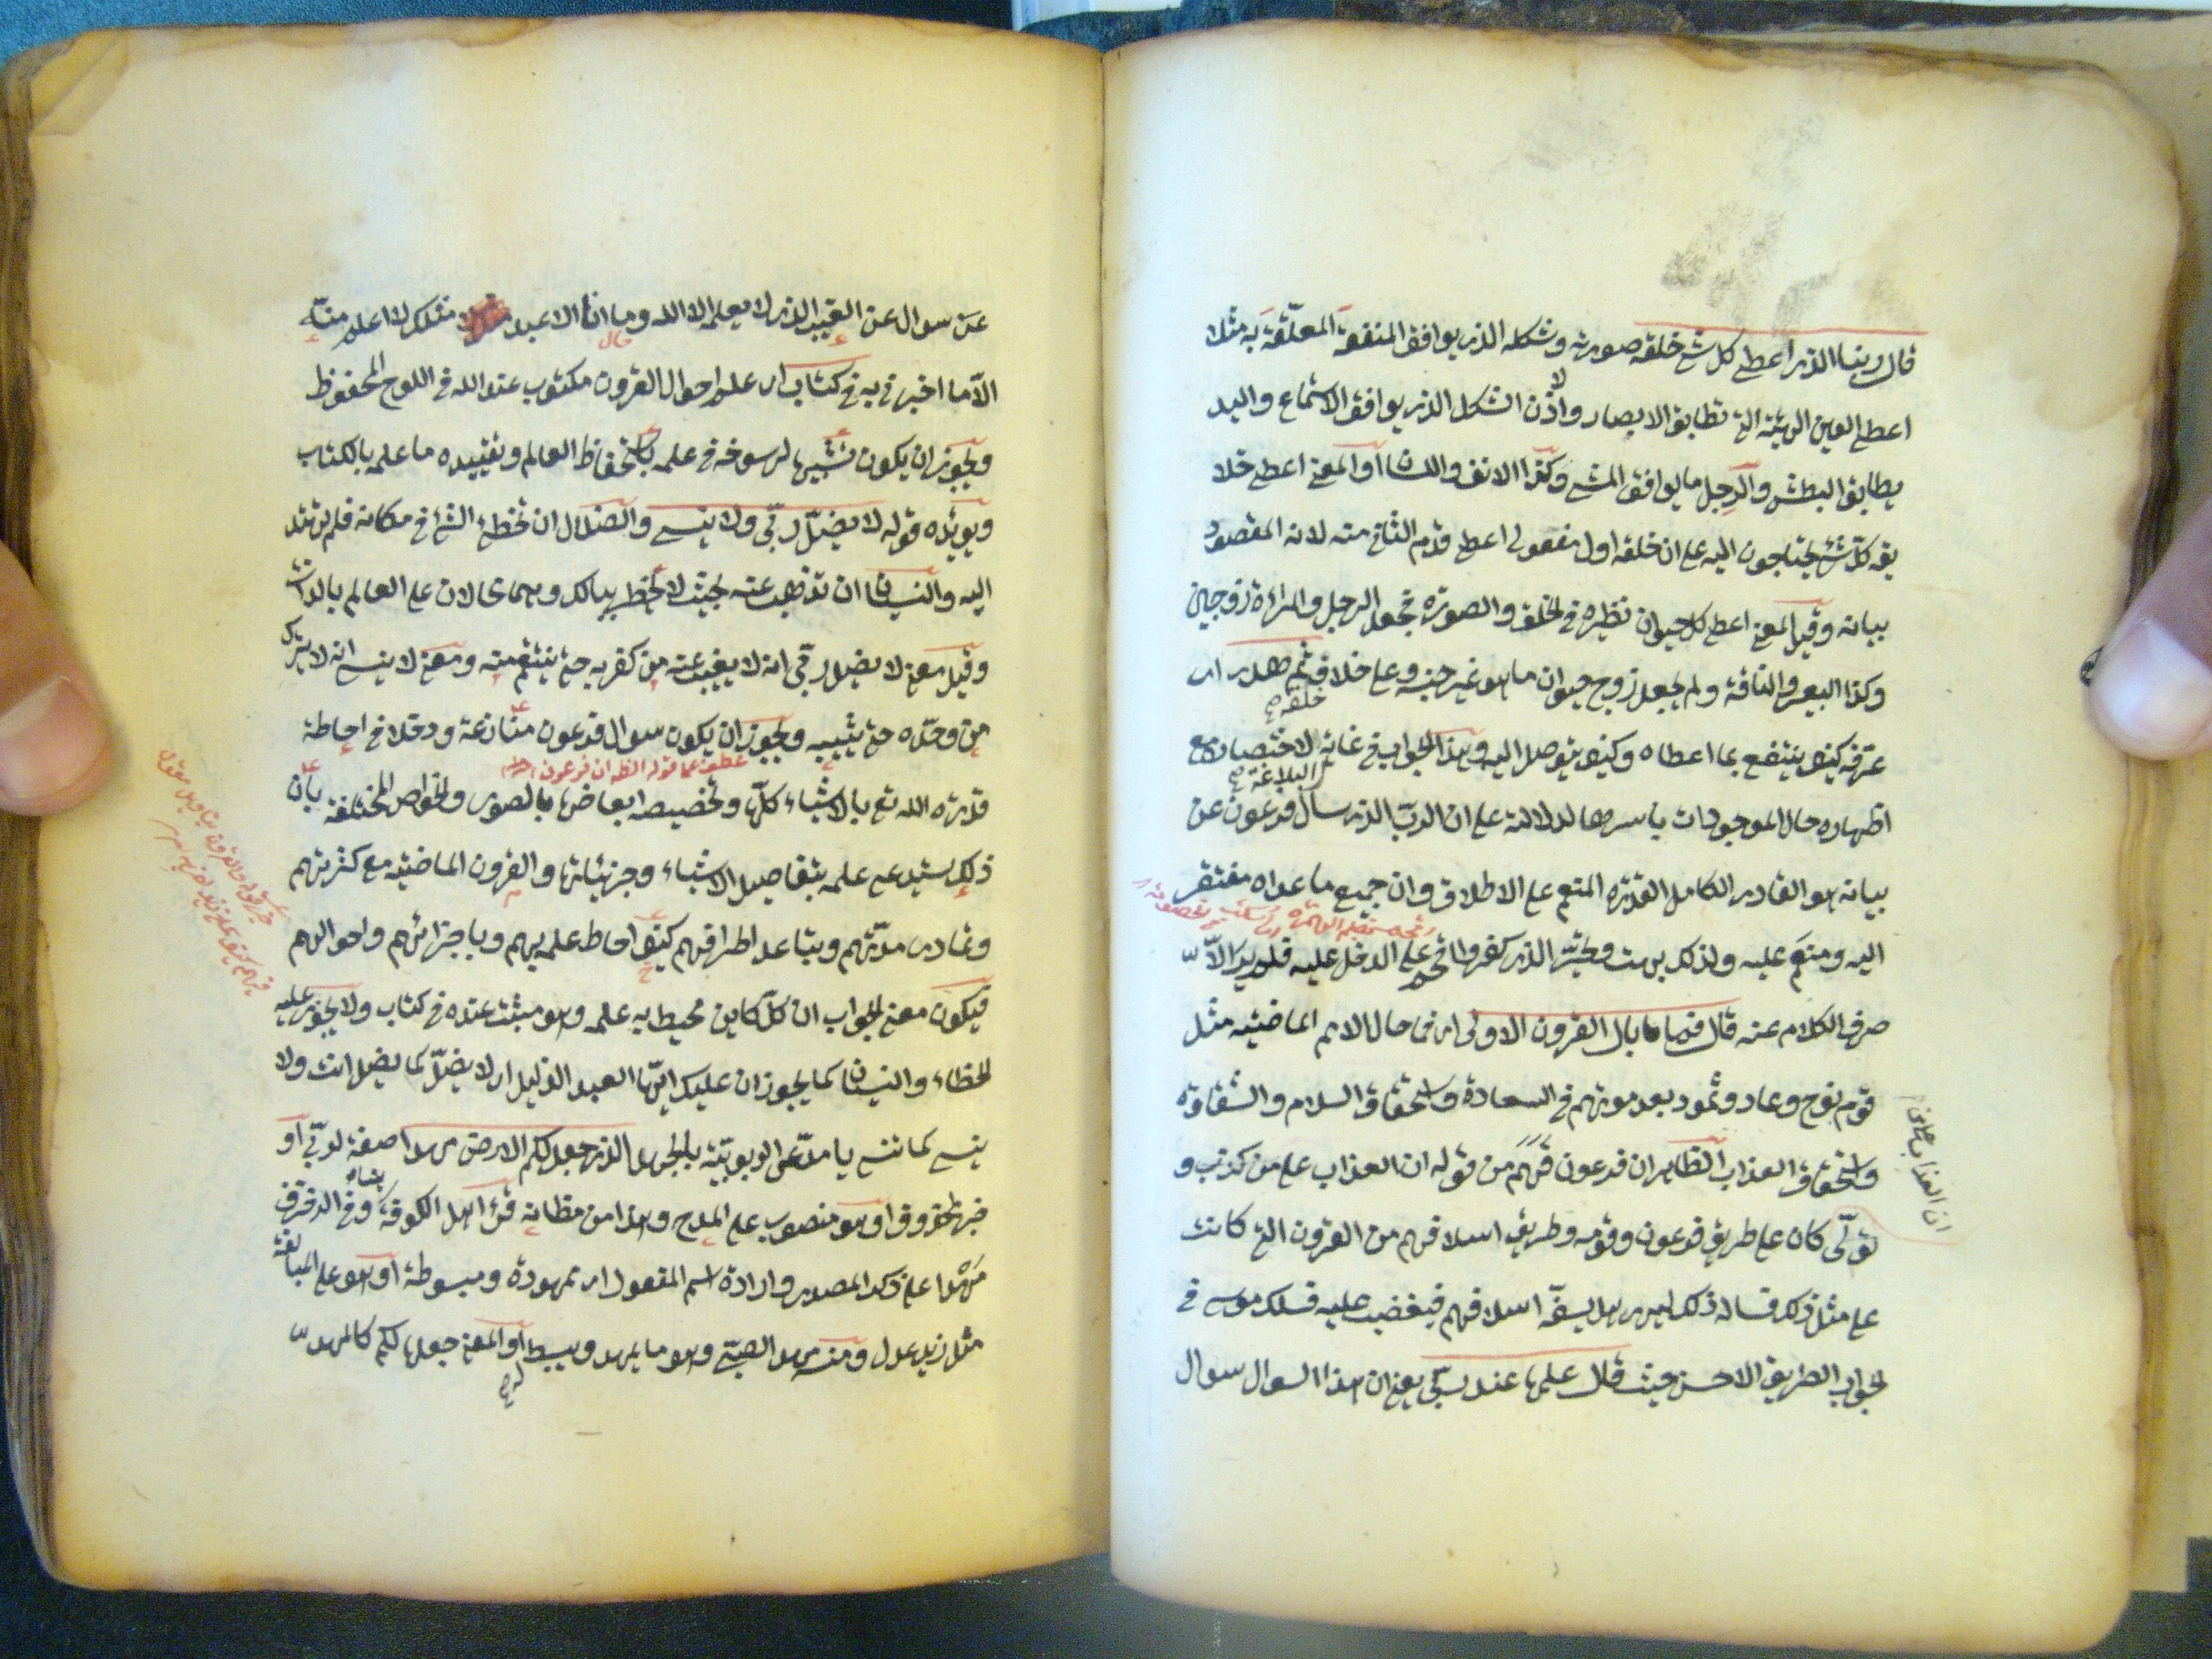 قال ربنا الذى اعطى كل شئ خلقه صورته وشكله الذى يوافق المنفعة المعلّقة به مثلا
اعطى العين الهيئة التى تطابق الابصار والاذن الشكل الذى يوافق الاستماع واليد
يطابق البطش والرِجل ما يوافق المشى وكذا الانف واللسان او المعنى اعطى خلا
يقه كلّ شئ يحتاجون اليه على ان خلقه اول مفعولى اعطى قدم الثانى منه لانه المقصود
بيانه وقيل المعنى اعطى كل حيوان نظيره فى الخلق والصورة فجعل الرجل والمراءة زوجين
وكذا البعير والناقة ولم يجعل زوج حيوان ما هو غير جنسه وعلى خلاف ثم هدى اى
خلقه صح
عرّفه كيف ينتفع بما اعطاه وكيف يتوصل اليه وهذا الجواب فى غاية الاختصار مع
البلاغة صح
اظهاره حال الموجودات باسرها لدلالته على ان الربّ الذى سأل فرعون عن
بيانه هو القادر الكامل القدرة المنعم على الاطلاق وان جميع ما عداه مفتقر
اليه ومنعَم عليه ولذلك بهت وتحيّر الذى كفر وافحم على الدخل عليه فلم ير الاّ
صرف الكلام عنه قال فما بال القرون الاولى اى فما حال الامم الماضية مثل
قوم نوح وعاد وثمود بعد موتهم فى السعادة واستحقاق السلام والشقاوة
واستحقاق العذاب الظاهر ان فرعون فهم من قوله ان العذاب على من كذب و
تولّى كان على طريق فرعون وقومه وطريق اسلافهم من القرون التى كانت
على مثل ذلك فساله ذلك ليرى هل يسفّه اسلافهم فيغضب عليه فسلك موسى فى
الجواب الطريق الاحسن حيث قال علمها عند ربّى يعنى ان هذا السوال سوال
عن سوال عن الغيب الذى لا يعلمه الا الله وما انا الا عبد مثلك لا اعلم منه
حال
الاّ ما اخبرنى به فى كتاب اى علم احوال القرون مكتوب عند الله فى اللوح المحفوظ
ويجوز ان يكون تشبيها لرسوخه فى علمه باستحفاظ العالم وتقييده ما علمه بالكتاب
ويويّده قوله لا يضلّ ربّى ولا ينسى والضلال ان تخطئ الشئ فى مكانه فلم تهتد
اليه والنسيان ان تذهب عنه بحيث لا يخطر ببالك وهما محالان على العالم بالذات
وقيل معنى لا يضل ربّى انه لا يغيب عنه من كفر به حتى ينتقم منه ومعنى لا ينسى انه لا يترك
من وحّده حتى يثيبه ويجوز ان يكون سوال فرعون منازعة ودخلا فى احاطة
عطف على قوله الظاهر ان فرعون
قدرة الله تع بالاشياء كلّها وتخصيصه ابعاضها بالصور والخواص المختلفة بان
ذلك يستدعى علمه بتفاصيل الاشياء وجزئياتها والقرون الماضية مع كثرتهم
وتمادى مدّتهم وتباعد اطرافهم كيف احاط علمه بهم وباجزائهم واحوالهم
فيكون معنى الجواب ان كلّ كاين محيط به علمه وهو مثبت عنده فى كتاب ولا يجوز عليه
الخطاء والنسيان كما يجوزان عليك ايّها العبد الذليل اى لا يضلّ كما يضل انت ولا
ينسى كما تنسى يا مدّعى الربوبيّة بالجهل الذى جعل لكم الارض مهدا صفة لربّى او
خبر لمحذوف او هو منصوب على المدح وهذا من مظانه قرئ اهل الكوفة وفى الزخرف
مَهْدا على ذكر المصدر وارادة اسم المفعول اى ممهودة ومبسوطة او هو على المبالغة
مثل زيد عدل ومنه مهد الصبىّ وهو ما يمهد ويبسط او المعنى جعلها لكم كالمهد
له صح